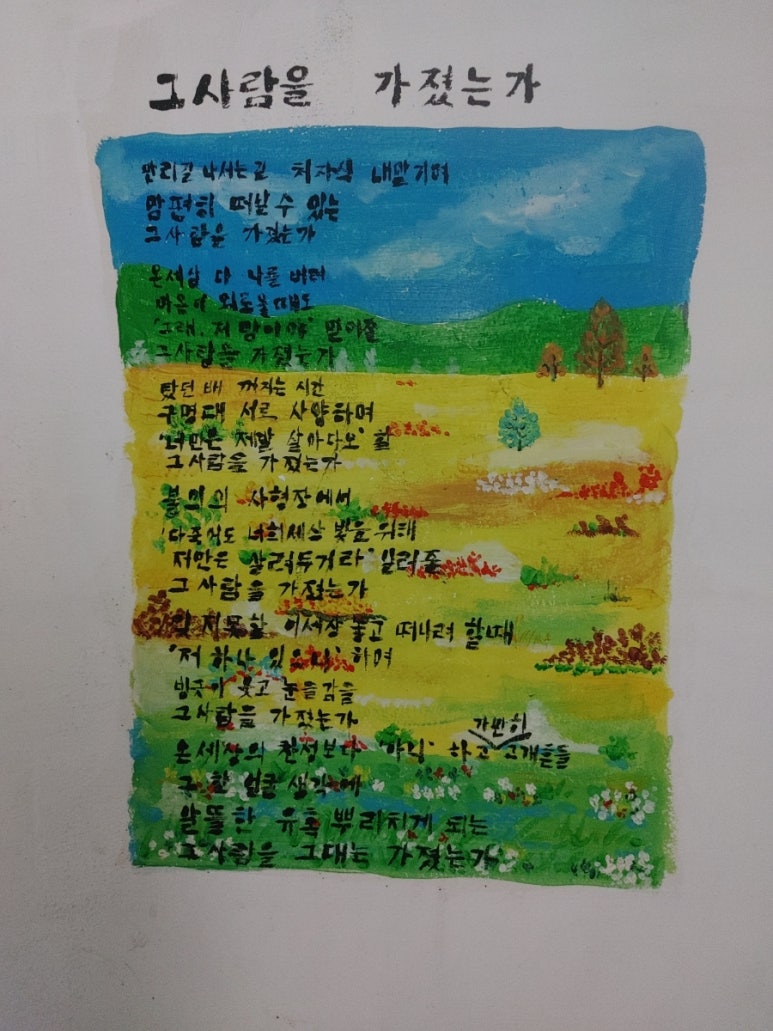 그사람을 가졌는가
만리길 나서는 길 처자식 내맡기며
맘편히 떠날 수 있는
그사람을 가졌는가
온세상 다 나를 버려
마음이 외로울 때도
'그래, 저 맘이야' 믿어줄
그사람을 가졌는가
탔던 배 꺼지는 시간
구명대 서로 사양하며
'너만은 제발 살아다오' 할
그사람을 가졌는가
불의의 사형장에서
'다 죽어도 너희세상 빛을 위해
저만은 살려두거라' 일러줄
그사람을 가졌는가
잊지못할 이세상 놓고 떠나려 할때
'저 하나 있으니' 하며
빙긋이 웃고 눈을 감을
그사람을 가졌는가
가만히
온세상의 찬성보다 '아니' 하고 고개흔들
그 한 얼굴 생각에
알뜰한 유혹 뿌리치게 되는
그사람을 그대는 가졌는가